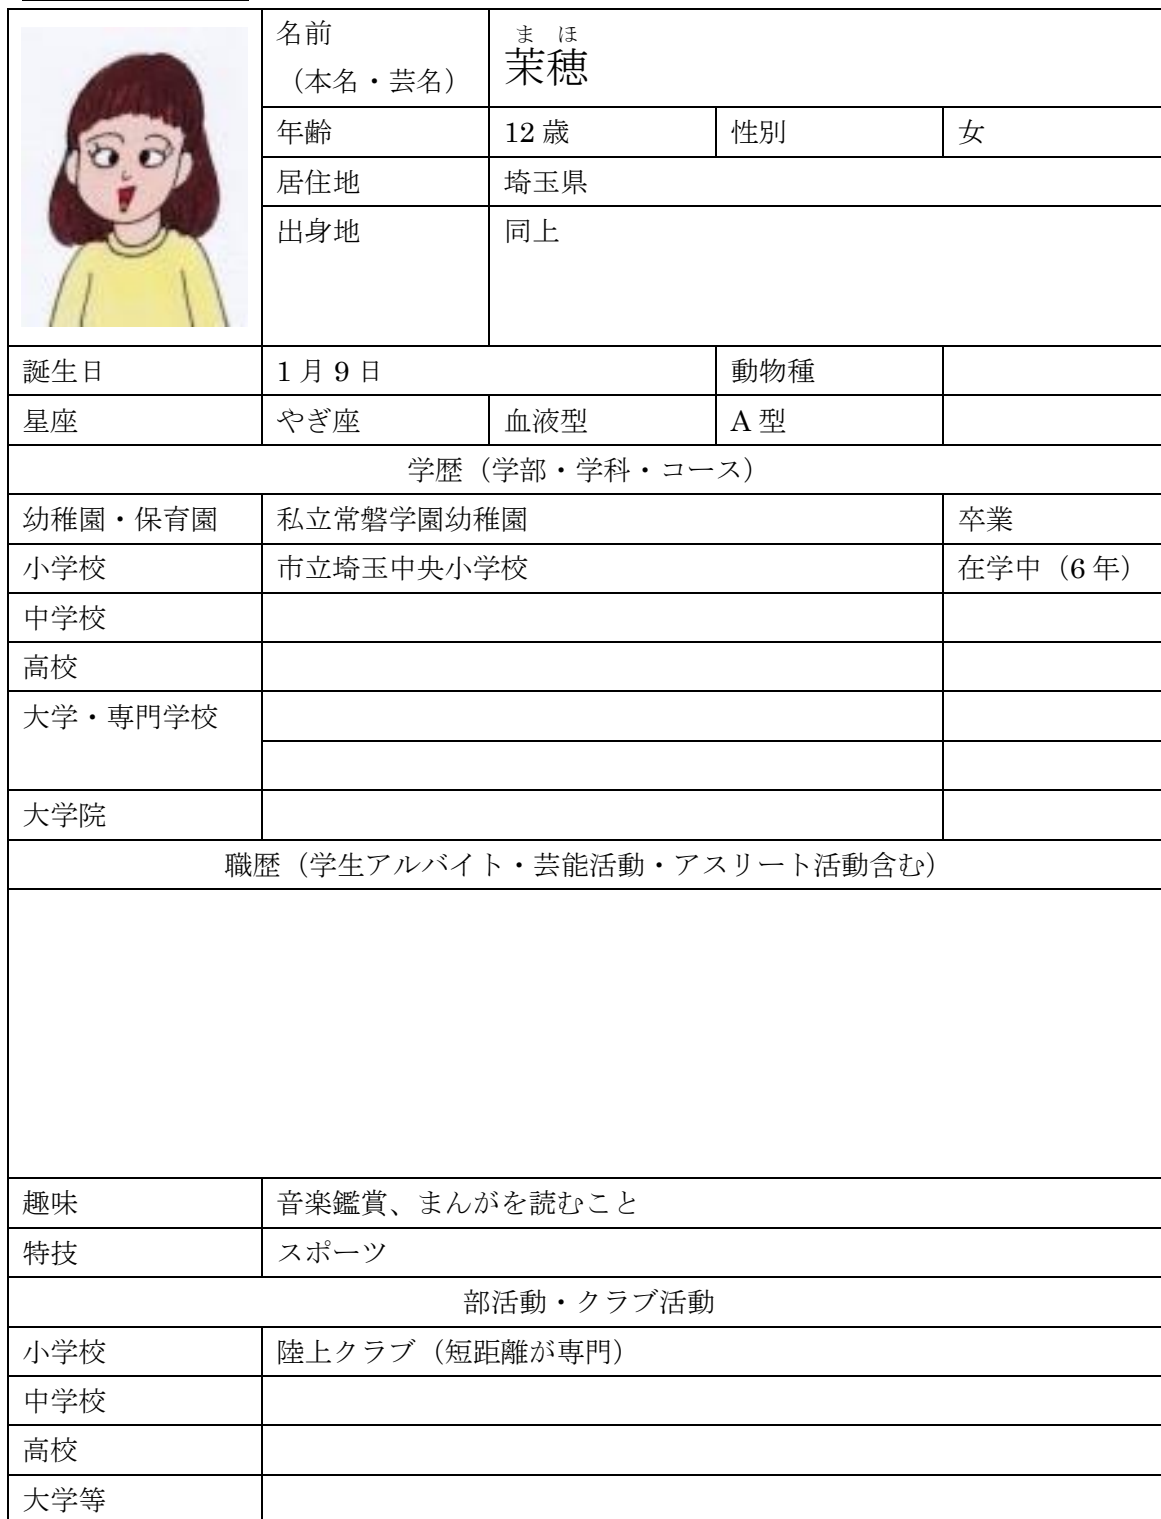 まほ
名前 茉穂
（本名・芸名）
年齢 12歳 性別 女
居住地 埼玉県
出身地 同上
誕生日 1月9日 動物種
星座 やぎ座 血液型 A型
学歴（学部・学科・コース）
幼稚園・保育園 私立常磐学園幼稚園 卒業
小学校 市立埼玉中央小学校 在学中（6年）
中学校
高校
大学・専門学校
大学院
職歴（学生アルバイト・芸能活動・アスリート活動含む）
趣味 音楽鑑賞、まんがを読むこと
特技 スポーツ
部活動・クラブ活動
小学校 陸上クラブ（短距離が専門）
中学校
高校
大学等